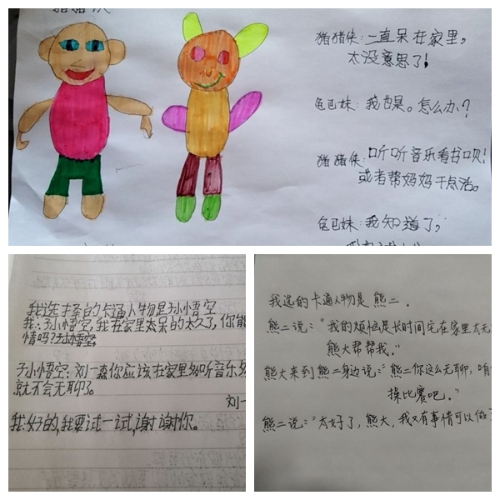 猪猪侠:一直呆在家里,
太没意思了!
我也是。怎么办?
猪猪侠:听听音乐看书呗!
或者帮妈妈干点活。
我知道了,
我选择的卡通人物是孙小悟空
我:孙小悟空,我在家里太呆的太久了,你能
情吗?
孙小悟空:刘一森你应该在家里听听音乐
就不会无聊了。
刘一
我:好的,我要试一试,谢谢你。
我选的卡通人物是 熊二。
熊二说:“我的烦恼是长时间宅在家里太无
熊大帮帮我。”
熊大来到熊二身边说:“熊二你这么无聊,咱
操比赛吧。”
熊二说:“太好了,熊大,我又有事情可以做